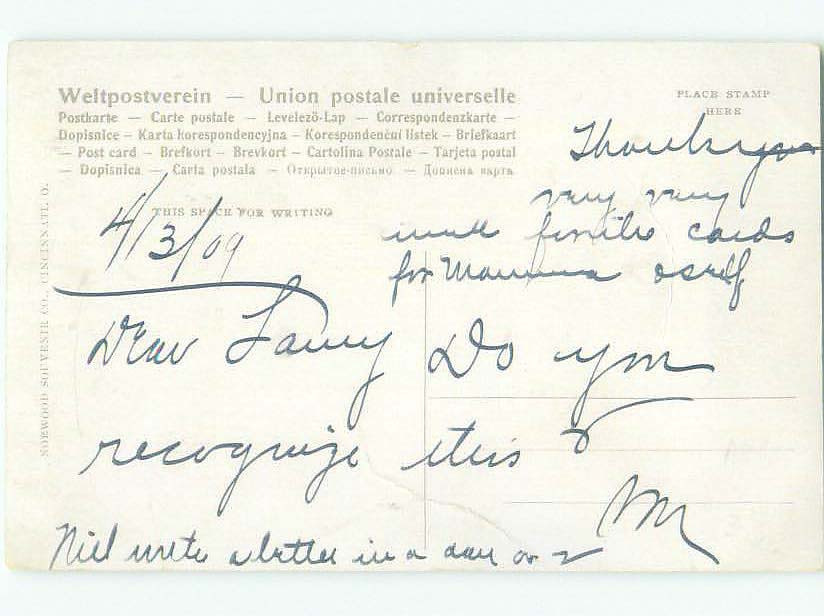 Weltpostverein — Union postale universelle
Postkarte — Carte postale — Levelező-Lap — Correspondenzkarte —
Dopisnice — Karta korespondencyjna — Korespondenční listek — Briefkaart
— Post card — Brefkort — Brevkort — Cartolina Postale — Tarjeta postal
— Dopisnica — Carta postala — Открытое-письмо — Дописна карта
PLACE STAMP
HERE
NORWOOD SOUVENIR CO., CINCINNATI, O.
THIS SPACE FOR WRITING
4/3/09
Thank you
very very
much for the cards
for Mamma &
Dear Do you
recognize this?
M
Will write a letter in a day or 2